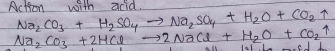 Action with acid.
Na₂CO₃ + H₂SO₄ → Na₂SO₄ + H₂O + CO₂ ↑
Na₂CO₃ + 2HCl → 2NaCl + H₂O + CO₂ ↑